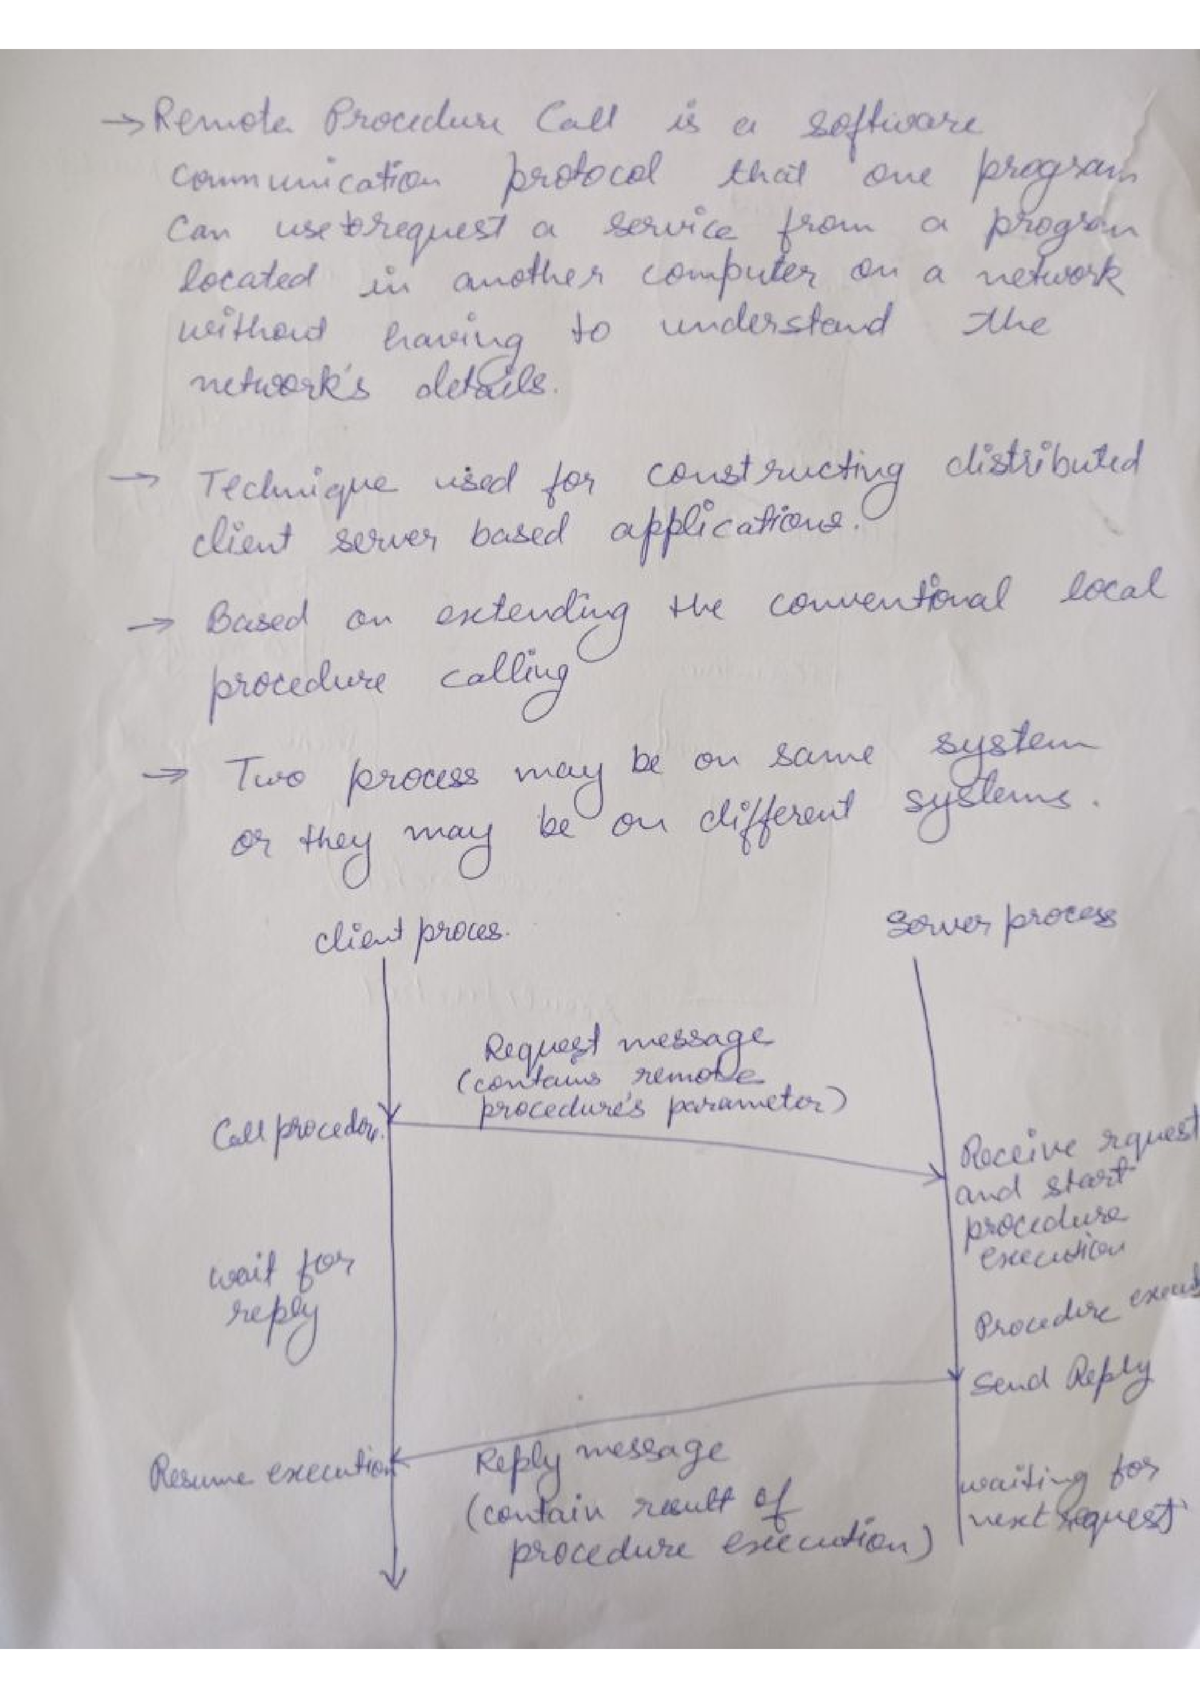 → Remote Procedure Call is a software
communication protocol that one program
can use to request a service from a program
located in another computer on a network
without having to understand the
network's details.
→ Technique used for constructing distributed
client server based applications.
→ Based on extending the conventional local
procedure calling
→ Two process may be on same system
or they may be on different systems.
client proces.
Server process
Request message
(contains remote
procedure's parameter)
Call procedure.
Receive rquest
and start
procedure
execution
wait for
reply
Procedure
Send Reply
Resume execution
Reply message
(contain result of
procedure execution)
waiting for
next request